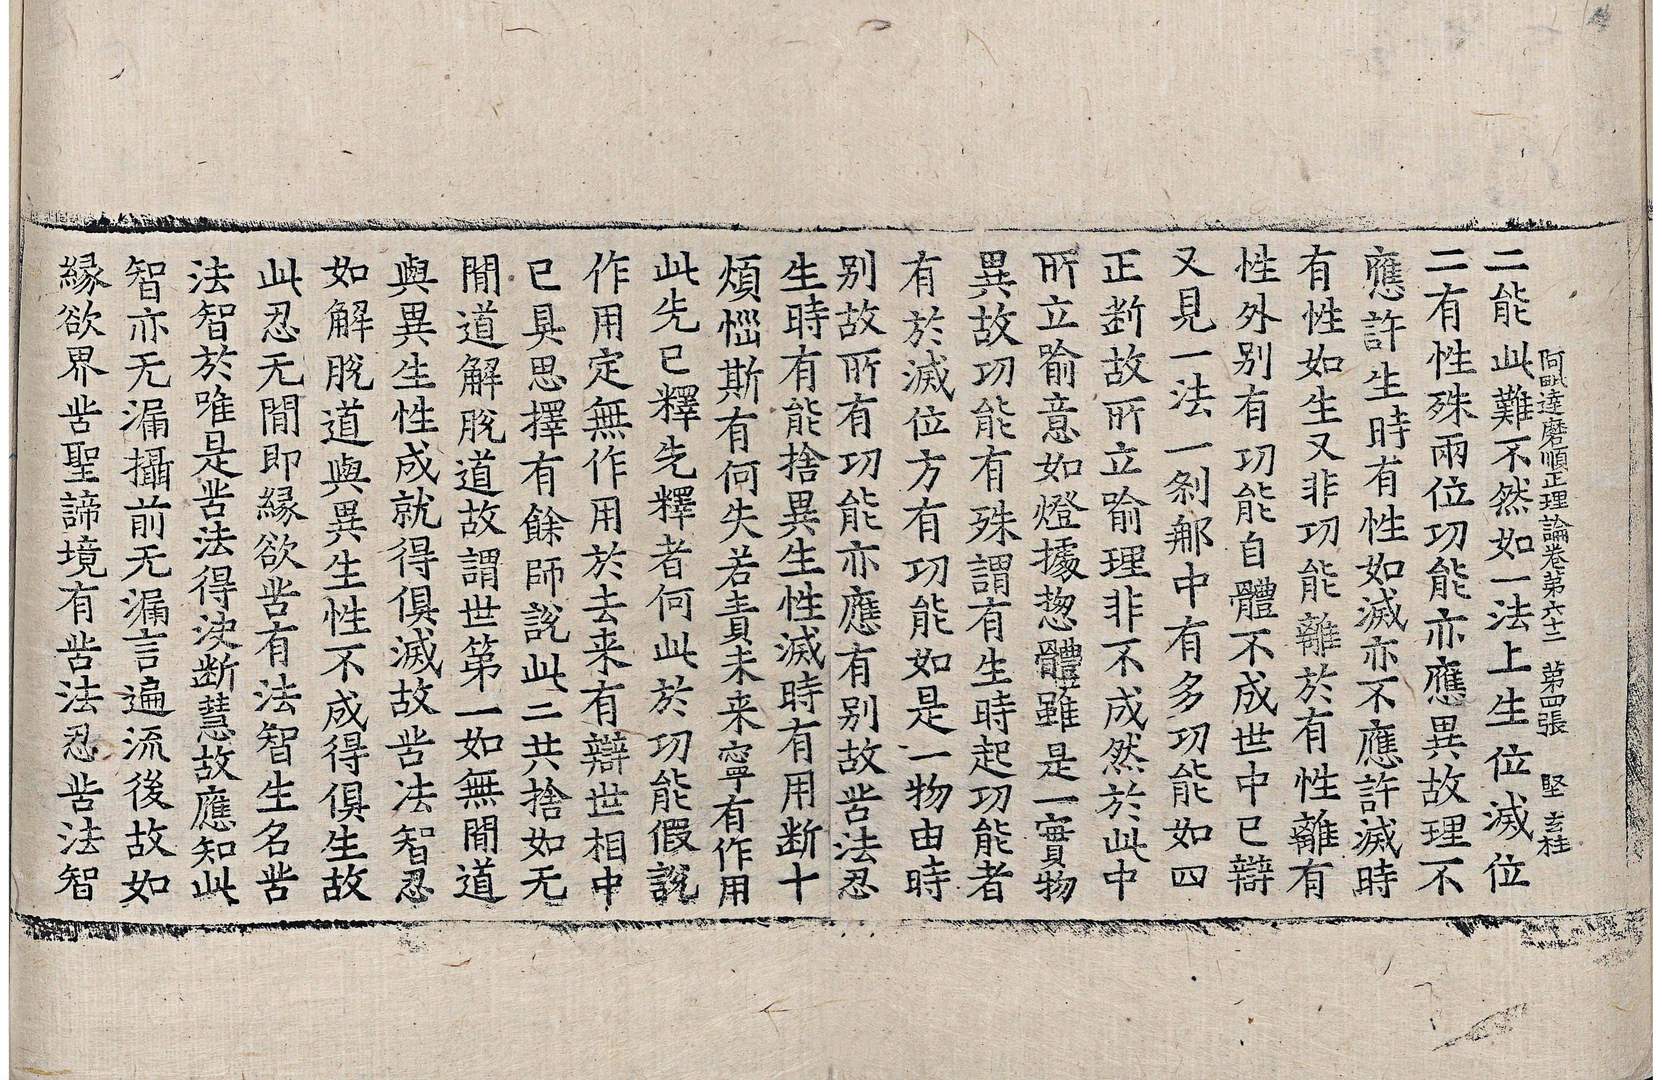 阿毗達磨順正理論卷第六十二 第四張 堅 玄桂
二能此難不然如一法上生位滅位
二有性殊兩位功能亦應異故理不
應許生時有性如滅亦不應許滅時
有性如生又非功能離於有性離有
性外别有功能自體不成世中已辯
又見一法一刹𨚗中有多功能如四
正斷故所立喻理非不成然於此中
所立喻意如燈據惣體雖是一實物
異故功能有殊謂有生時起功能者
有於滅位方有功能如是一物由時
别故所有功能亦應有别故苦法忍
生時有能捨異生性滅時有用断十
煩惱斯有何失若責未来寧有作用
此先已釋先釋者何此於功能假說
作用定無作用於去来有辯世相中
已具思擇有餘師說此二共捨如无
閒道解脫道故謂世第一如無閒道
與異生性成就得俱滅故苦法智忍
如解脫道與異生性不成得俱生故
此忍无閒即緣欲苦有法智生名苦
法智於唯是苦法得決断慧故應知此
智亦无漏攝前无漏言遍流後故如
緣欲界苦聖諦境有苦法忍苦法智